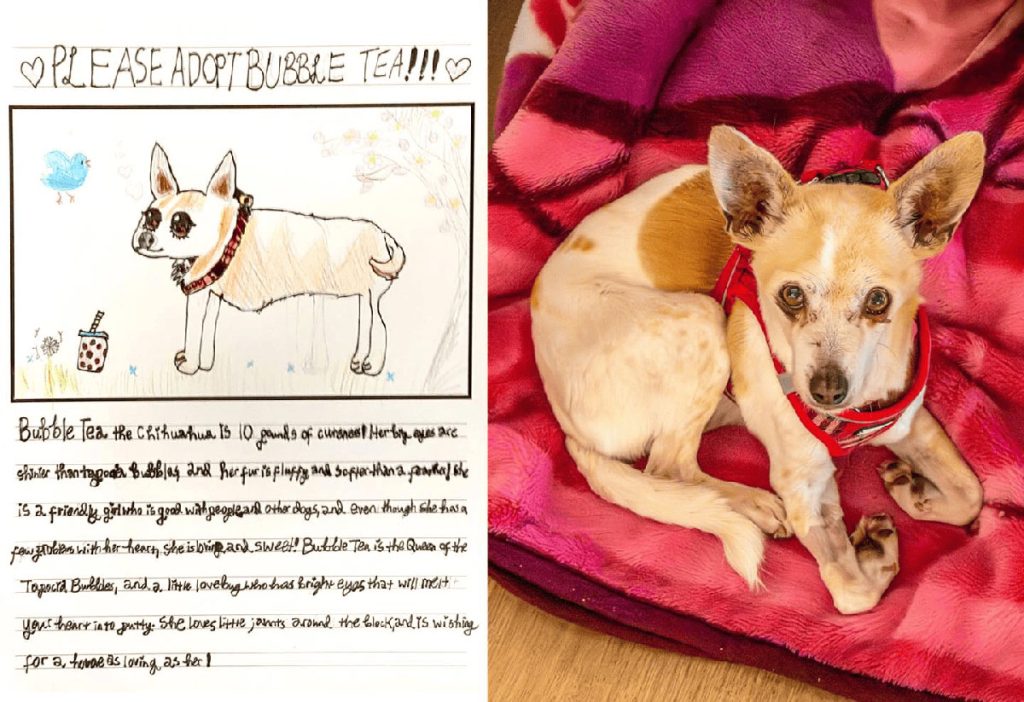 ♡PLEASE ADOPT BUBBLE TEA!!!♡
Bubble Tea the Chihuahua is 10 pounds of cuteness! Her big eyes are
shinier than tapioca Bubbles, and her fur is fluffy and softer than a feather! She
is a friendly girl who is good with people and other dogs, and even though she has a
few problems with her heart, she is loving and sweet! Bubble Tea is the Queen of the
Tapocia Bubbles, and a little lovebug who has bright eyes that will melt
your heart into putty. She loves little jaunts around the block, and is wishing
for a home as loving as her!